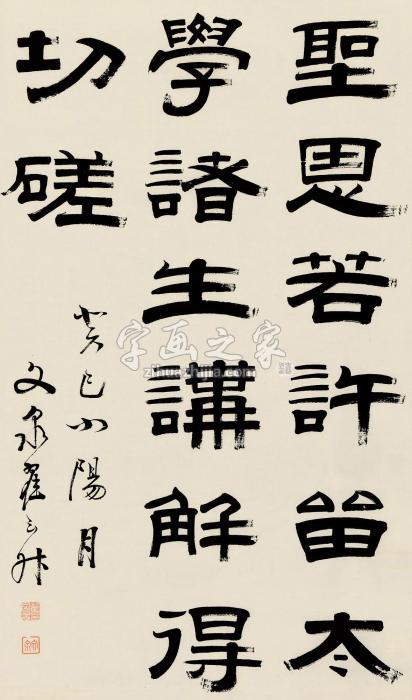 聖恩若許畱太
學諸生講解得
切磋
癸巳小陽月
文泉翟云升
字画之家
zihuazhijia.com